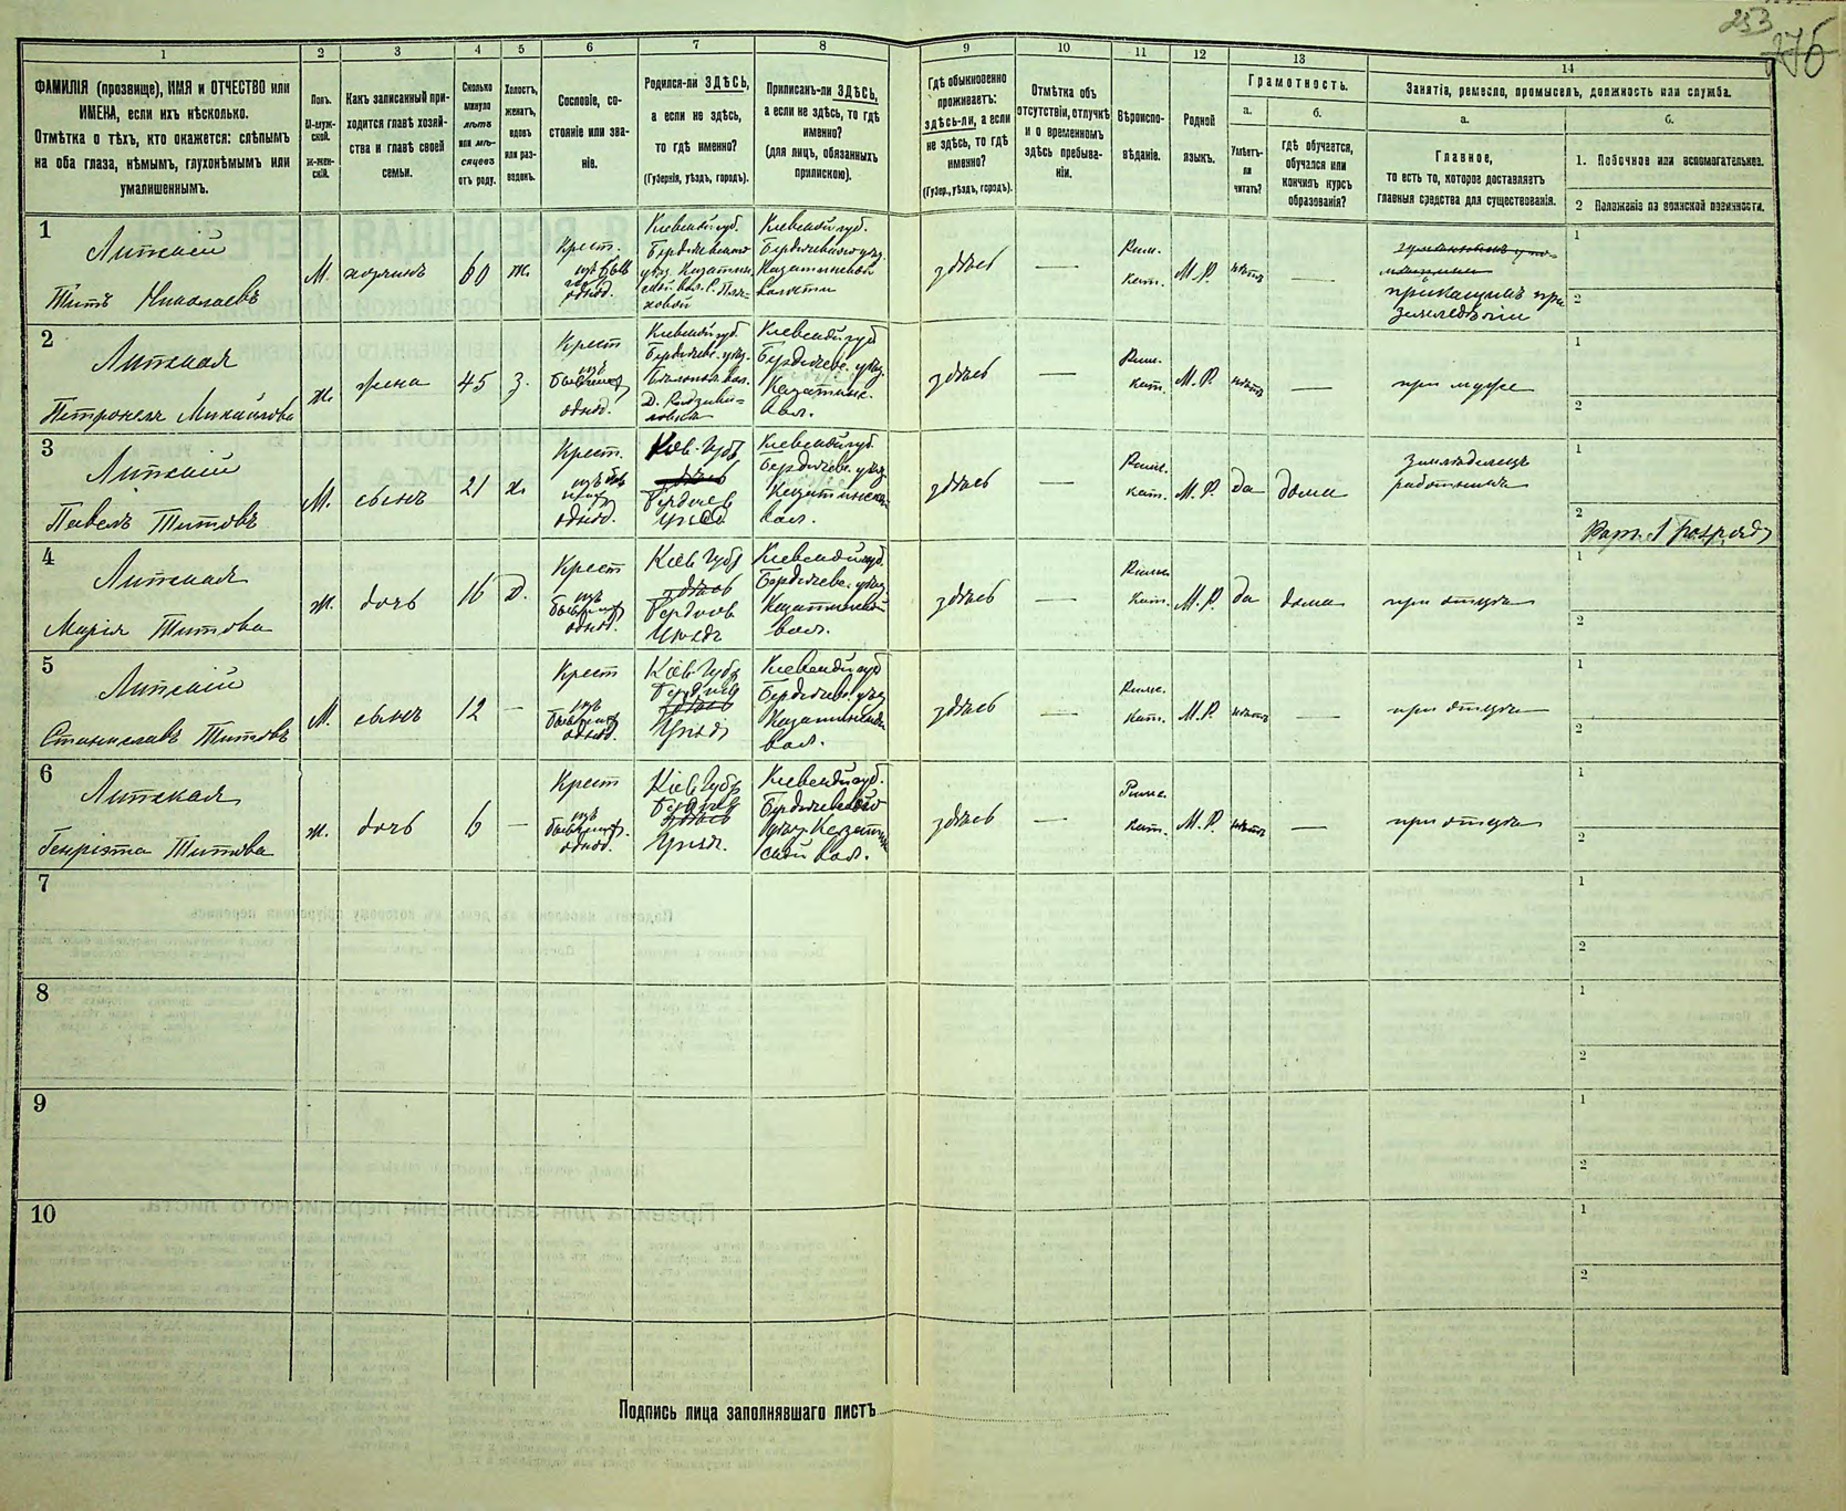 253
276
1
2
3
4
5
6
7
8
9
10
11
12
13
14
ФАМИЛІЯ (прозвище), ИМЯ и ОТЧЕСТВО или
ИМЕНА, если ихъ нѣсколько.
Отмѣтка о тѣхъ, кто окажется: слѣпымъ
на оба глаза, нѣмымъ, глухонѣмымъ или
умалишеннымъ.
Полъ.
М-муж-
ской.
ж-жен-
скій.
Какъ записанный при-
ходится главѣ хозяй-
ства и главѣ своей
семьи.
Сколько
минуло
лѣтъ
или мѣ-
сяцевъ
отъ роду.
Холостъ,
женатъ,
вдовъ
или раз-
веденъ.
Сословіе, со-
стояніе или зва-
ніе.
Родился-ли ЗДѢСЬ,
а если не здѣсь,
то гдѣ именно?
(Губернія, уѣздъ, городъ).
Приписанъ-ли ЗДѢСЬ,
а если не здѣсь, то гдѣ
именно?
(для лицъ, обязанныхъ
припискою).
Гдѣ обыкновенно
проживаетъ:
здѣсь-ли, а если
не здѣсь, то гдѣ
именно?
(Губер., уѣздъ, городъ).
Отмѣтка объ
отсутствіи, отлучкѣ
и о временномъ
здѣсь пребыва-
ніи.
Вѣроиспо-
вѣданіе.
Родной
языкъ.
Грамотность.
а.
Умѣетъ-
ли
читать?
б.
гдѣ обучается,
обучался или
кончилъ курсъ
образованія?
Занятіе, ремесло, промыселъ, должность или служба.
а.
Главное,
то есть то, которое доставляетъ
главныя средства для существованія.
б.
1. Побочное или вспомогательное.
2 Положеніе по воинской повинности.
1
Липскій
Титъ Николаевъ
М. хозяинъ 60 ж.
Крест.
изъ быв
однод.
Кіевской губ.
Бердичевскаго
уѣз. Казатин
ской вол. с.
Кіевской губ.
Бердичевскаго уѣз.
Казатинской
волости
здѣсь
—
Рим.
кат.
М.Р.
нѣтъ
—
прикащикъ при
земледѣліи
1
2
2
Липская
Петронеля Михайлова
ж. жена 45 З.
Крест
изъ
бывших
однод.
Кіевской губ.
Бердичевс. уѣз.
Кіевской губ
Бердичевс. уѣзд.
Казатинс.
вол.
здѣсь
—
Рим.
кат.
М.Р.
нѣтъ
—
при мужѣ
1
2
3
Липскій
Павелъ Титовъ
М. сынъ 21 х.
Крест.
изъ быв
однод.
Кіев. Губ
здѣсь
Бердичев
Уѣзд
Кіевской губ.
Бердичевс. уѣзд
Казатинской
вол.
здѣсь
—
Римс.
кат.
М.Р.
да
дома
Земледѣлецъ
работникъ
1
2
Рат. 1 розряда
4
Липская
Марія Титова
ж. дочь 16 Д.
Крест
изъ
бывших
однод.
Кіев. Губ
здѣсь
Бердичев
Уѣзд
Кіевской губ.
Бердичевс. уѣзд
Казатинской
вол.
здѣсь
—
Римс.
кат.
М.Р.
да
дома
при отцѣ
1
2
5
Липскій
Станиславъ Титовъ
М. сынъ 12 —
Крест
изъ
бывших
однод.
Кіев. Губ
Бердичев
здѣсь
Уѣзд
Кіевской губ
Бердичевс. уѣзд
Казатинской
вол.
здѣсь
—
Римс.
кат.
М.Р.
нѣтъ
—
при отцѣ
1
2
6
Липская
Генріэта Титова
ж. дочь 6 —
Крест
изъ
бывших
однод.
Кіев. Губ
Бердичев
здѣсь
Уѣзд.
Кіевской губ.
Бердичевскаго
уѣзд. Казатин
ской вол.
здѣсь
—
Римс.
кат.
М.Р.
нѣтъ
—
при отцѣ
1
2
7
1
2
8
1
2
9
1
2
10
1
2
Подпись лица заполнявшаго листъ